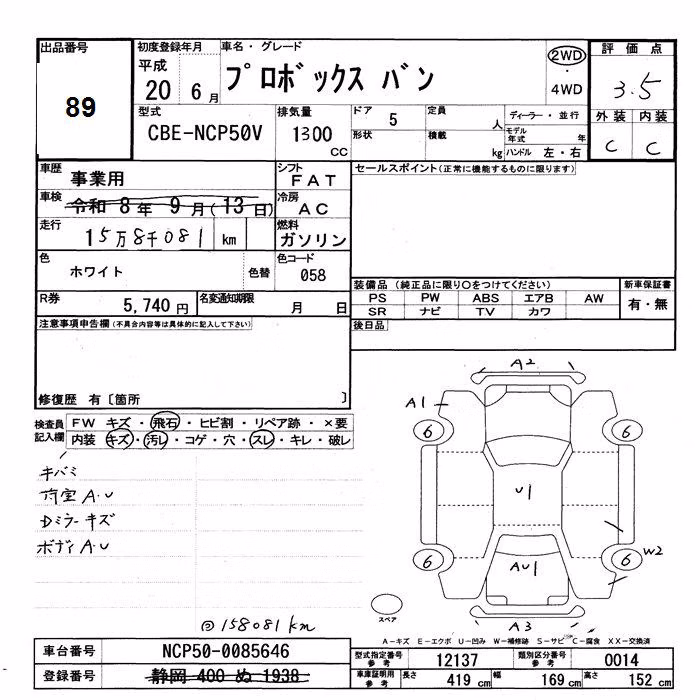 出品番号
89
初度登録年月
平成
20 6 月
車名・グレード
プロボックス バン
2WD
・
4WD
評価点
3.5
外装 内装
C C
型式
CBE-NCP50V
排気量
1300
CC
ドア
5
定員
人
形状
積載
kg
ディーラー・並行
モデル年式 年
ハンドル 左・右
車歴
事業用
シフト
FAT
車検
令和 8年 9月(13日)
冷房
AC
走行
15万8千081 km
燃料
ガソリン
色
ホワイト
色替
色コード
058
R券
5,740 円
名変通知期限
月 日
セールスポイント(正常に機能するものに限ります)
装備品 (純正品に限り○をつけてください)
PS PW ABS エアB AW
SR ナビ TV カワ
新車保証書
有・無
後日品
注意事項申告欄(不具合内容等は具体的に記入して下さい)
修復歴 有〔箇所 〕
検査員記入欄
FW キズ・飛石・ヒビ割・リペア跡・×要
内装 キズ・汚レ・コゲ・穴・スレ・キレ・破レ
キバミ
荷室A・U
Dミラーキズ
ボディA・U
158081km
A2
A1
6
6
U1
W2
6
6
AU1
A3
スペア
A-キズ E-エクボ U-凹み W-補修跡 S-サビ C-腐食 XX-交換済
車台番号
NCP50-0085646
登録番号
静岡 400 ぬ 1938
型式指定番号
参考
12137
類別区分番号
参考
0014
車庫証明用
参考
長さ 419 cm
幅 169 cm
高さ 152 cm